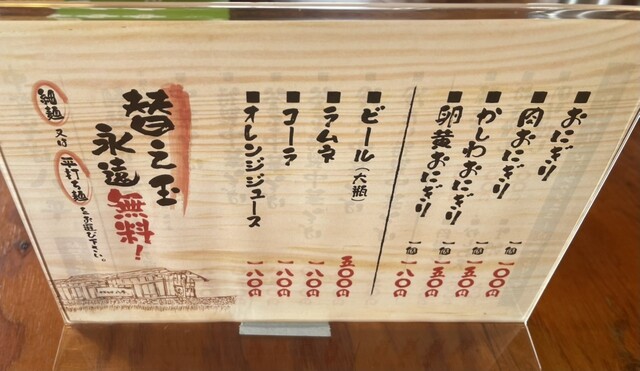 ■おにぎり 一個 一〇〇円
■肉おにぎり 一個 一五〇円
■かしわおにぎり 一個 一五〇円
■卵黄おにぎり 一個 一八〇円
■ビール(大瓶) 五〇〇円
■ラムネ 一八〇円
■コーラ 一八〇円
■オレンジジュース 一八〇円
替え玉
永遠無料!
細麺又は平打ち麺をお選び下さい。